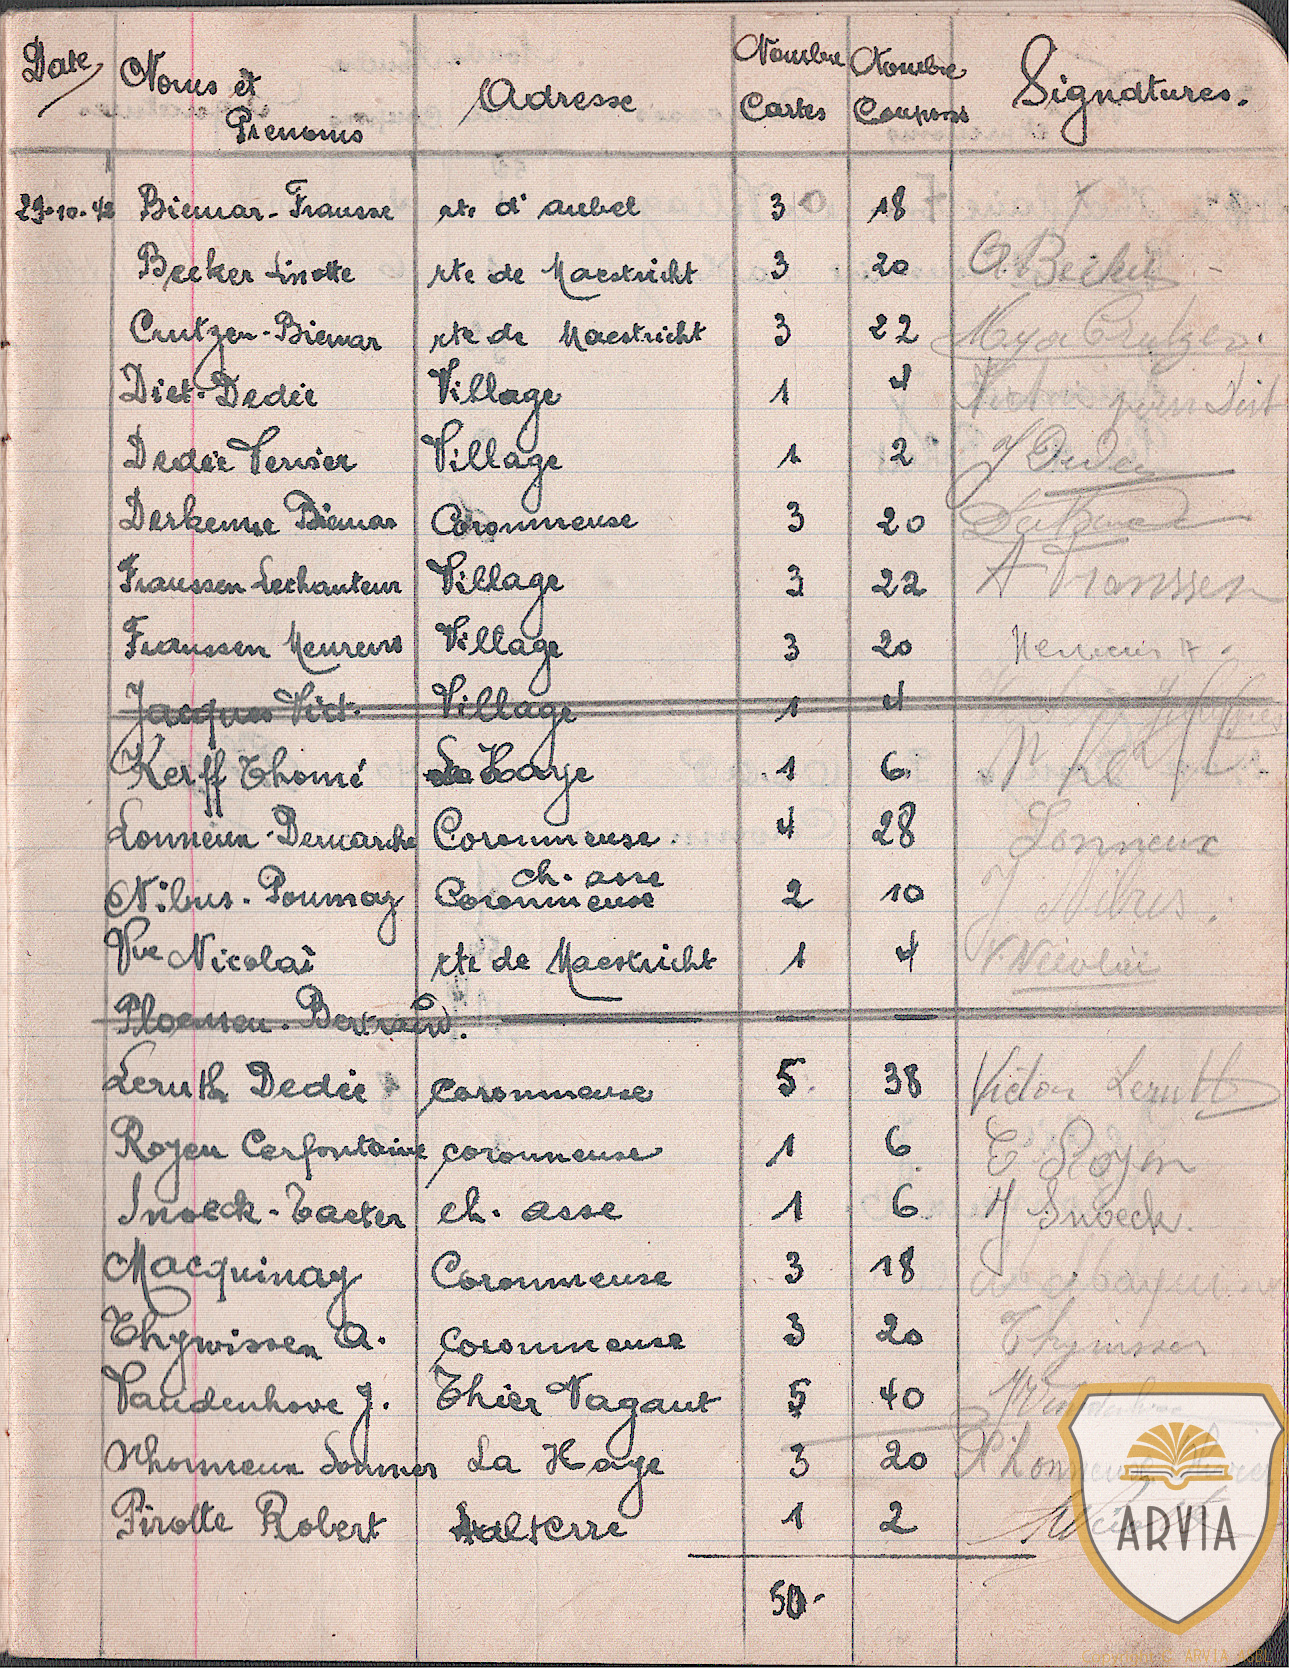 Date Noms et Prénoms Adresse Nombre Cartes Nombre Coupons Signatures.
29-10-42 Biemar-Fransse rte d'aubel 3 18
Becker Linotte rte de Maestricht 3 20 Becker
Crutzen-Biemar rte de Maestricht 3 22 Crutzen.
Diet-Dedée Village 1 4 Diet
Dedée Village 1 2
Derkenne Biemar Coronmeuse 3 20
Franssen Lechanteur Village 3 22 A Franssen
Franssen Meurens Village 3 20
Jacques Vict. Village 1 4
Kerff Thomé La Haye 1 6
Lonneux-Demarche Coronmeuse. 4 28 Lonneux
Nibus-Poumay ch. asse Coronmeuse 2 10 J Nibus.
Vve Nicolaï rte de Maestricht 1 4 V. Nicolaï
Ploemen-Bertrand.
Leruth Dedée coronmeuse 5 38 Victor Leruth
Royen Cerfontaine coronmeuse 1 6 Royen
Snoeck-Tacter ch. asse 1 6 Snoeck.
Macquinay Coronmeuse 3 18
Thywissen A. coronmeuse 3 20 Thywissen
Vandenhove J. Thier Nagant 5 40
Lhonneux La Haye 3 20
Pirotte Robert Halterre 1 2
50-
ARVIA